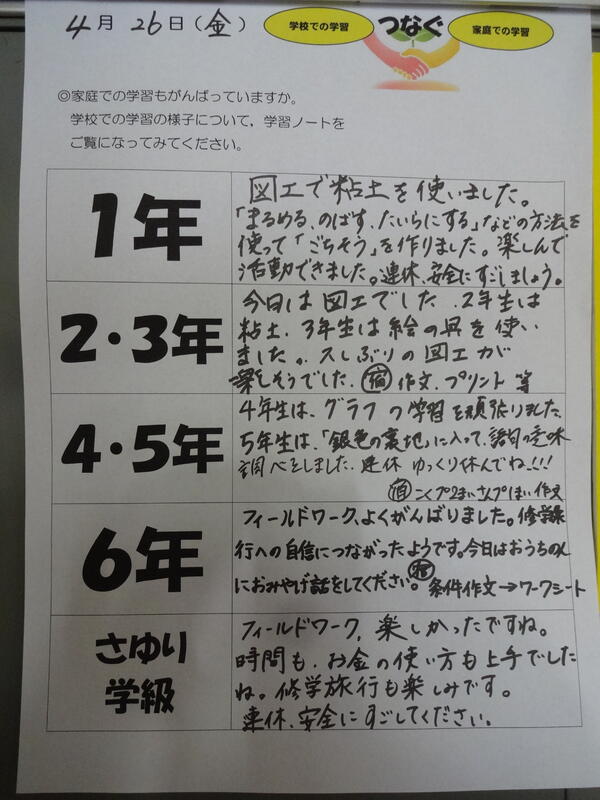 4月 26日(金)
学校での学習 つなぐ 家庭での学習
◎家庭での学習もがんばっていますか。
学校での学習の様子について，学習ノートを
ご覧になってみてください。
1年
図工で粘土を使いました。
「まるめる、のばす、たいらにする」などの方法を
使って「ごちそう」を作りました。楽しんで
活動できました。連休、安全にすごしましょう。
2・3年
今日は図工でした。2年生は
粘土、3年生は絵の具を使い
ました。久しぶりの図工が
楽しそうでした。宿 作文、プリント 等
4・5年
4年生は、グラフの学習を頑張りました。
5年生は、「銀色の裏地」に入って、語句の意味
調べをしました。連休 ゆっくり休んでね!!!
宿 こくプ2まい さんプ1まい 作文
6年
フィールドワーク、よくがんばりました。修学旅
行への自信につながったようです。今日はおうちの人
におみやげ話をしてください。宿 条件作文→ワークシート
さゆり
学級
フィールドワーク、楽しかったですね。
時間も、お金の使い方も上手でした
ね。修学旅行も楽しみです。
連休、安全にすごしてください。